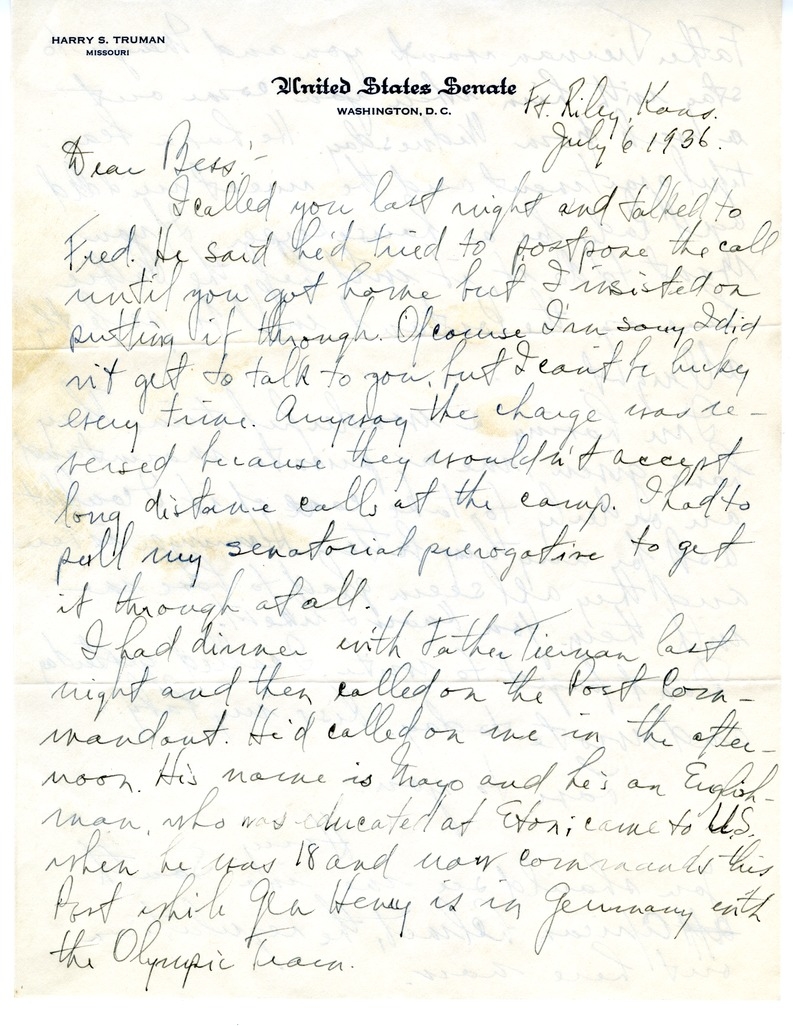 HARRY S. TRUMAN
MISSOURI
United States Senate
WASHINGTON, D. C.
Ft. Riley, Kans.
July 6 1936.
Dear Bess:-
I called you last night and talked to
Fred. He said he'd tried to postpone the call
until you got home but I insisted on
putting it through. Of course I'm sorry I did
n't get to talk to you, but I can't be lucky
every time. Anyway the charge was re-
versed because they wouldn't accept
long distance calls at the camp. I had to
pull my senatorial prerogative to get
it through at all.
I had dinner with Father Tiernan last
night and then called on the Post Com-
mandant. He'd called on me in the after-
noon. His name is Mayo and he's an English-
man, who was educated at Eton; came to U.S.
when he was 18 and now commands this
Post while Gen Henry is in Germany with
the Olympic Team.